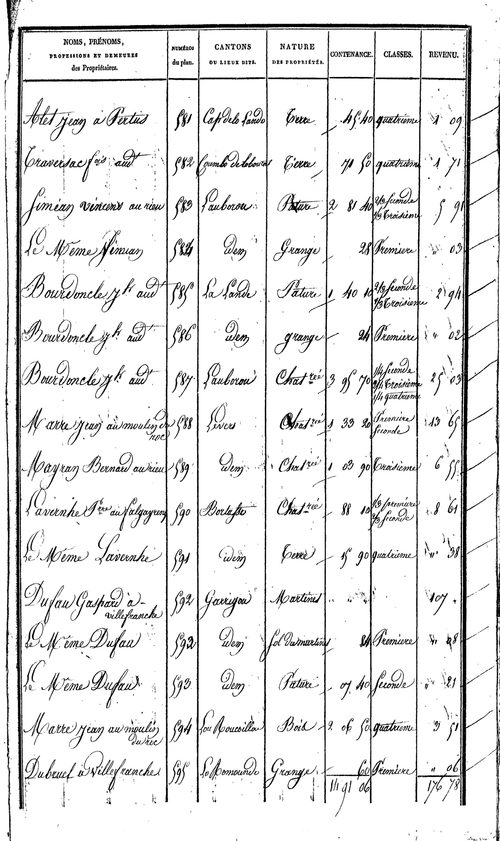 NOMS, PRÉNOMS, PROFESSIONS ET DEMEURES des Propriétaires. NUMÉROS du plan. CANTONS OU LIEUX DITS. NATURE DES PROPRIÉTÉS. CONTENANCE. CLASSES. REVENU.
Alet jean à Pertus 581 Cap de la Lando Terre 45 40 quatrième 1 09
Traversac fois audt 582 Terre 71 50 quatrième 1 71
Siméan vincens au rieu 583 Lauborou Pature 2 81 40 2/3 Seconde 1/3 Troisième 5 91
Le Même Simian 584 idem Grange 28 Premiere " 03
Bourdoncle jh audt 585 La Lande Pature 1 40 10 2/3 Seconde 1/3 Troisieme 2 94
Bourdoncle jh audt 586 idem grange 24 Première " 02
Bourdoncle jh audt 587 Lauborou Chatrée 3 95 70 1/4 Seconde 2/4 Troisième 1/4 quatrieme 25 03
Marre jean au moulin du roc 588 Levers Chatrée 1 33 20 Seconde 13 65
Mayran Bernard au rieu 589 idem Chatrée 1 03 90 Troisieme 6 55
Lavernhe au falgayrens 590 Chatrée 88 10 1/3 première 2/3 Seconde 8 61
Le Même Lavernhé 591 idem Terre 15 90 quatrieme " 38
Dufau Gaspard à villefranche 592 Garrigou Martines " " " 107 "
Le Même Dufau 592 idem Sol du martines 84 Premiere " 08
Le Même Dufau 593 idem Pature 07 40 Seconde " 21
Marre jean au moulin du roc 594 Lou Roucillou Bois 2 06 50 quatrieme 3 51
Dubruel à Villefranche 595 La Romounde Grange 60 Premiere " 06
111 91 06 176 78